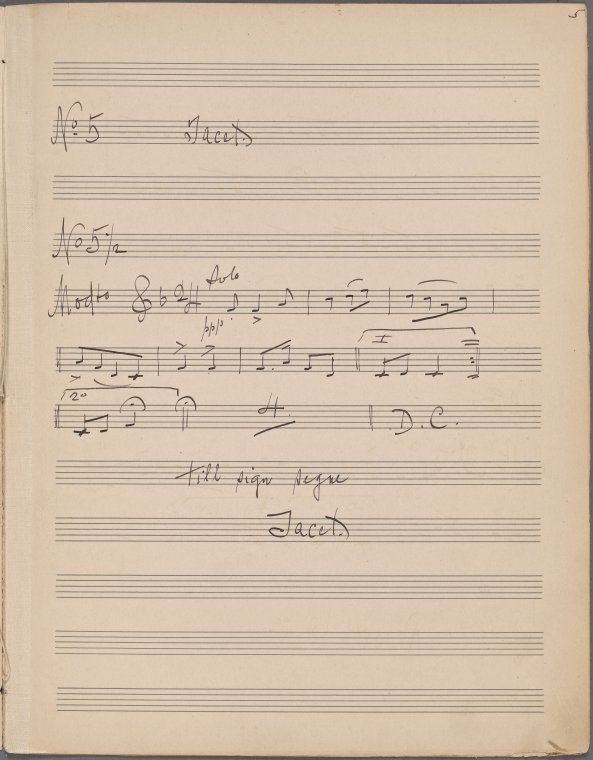 5
No. 5 Tacet
No 5 1/2
Solo
Modto 2/4
ppp
I
2o
4 D.C.
till sign segue
Tacet